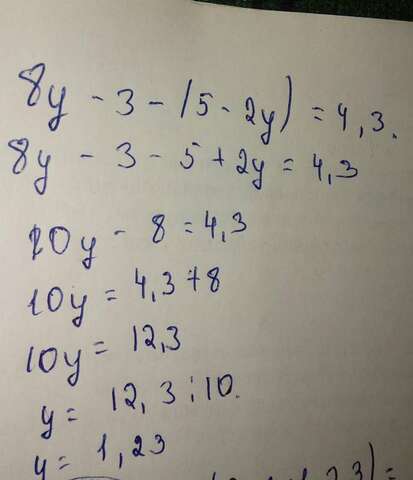 8y - 3 - (5 - 2y) = 4,3.
8y - 3 - 5 + 2y = 4,3
10y - 8 = 4,3
10y = 4,3 + 8
10y = 12,3
y = 12,3 : 10.
y = 1,23